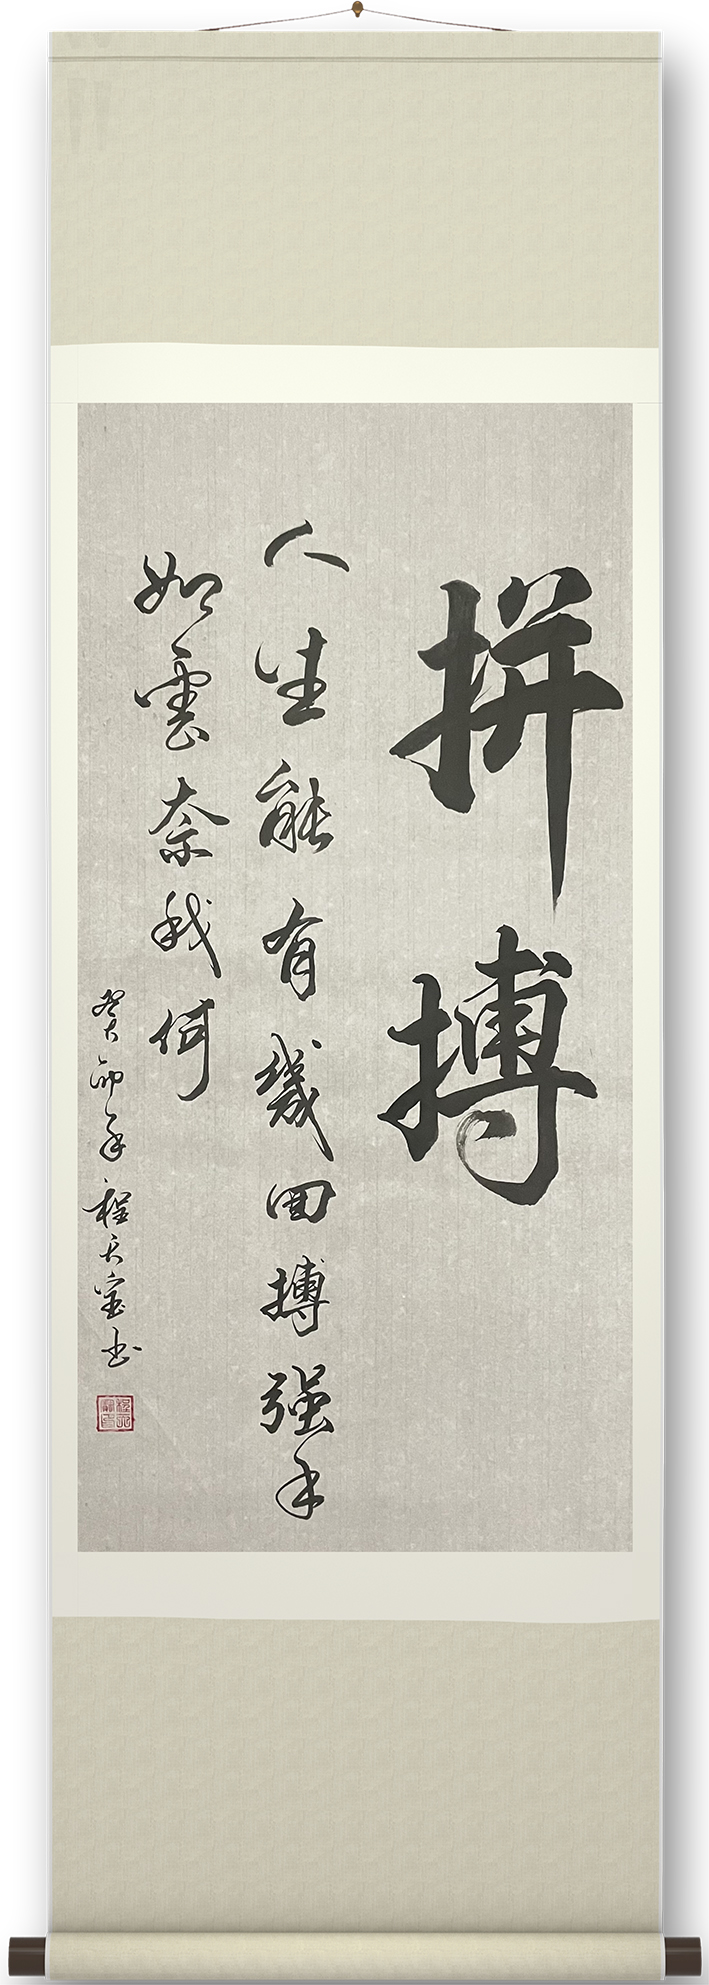 拼搏
人生能有幾回搏强手
如雲奈我何
癸卯年程天寶书